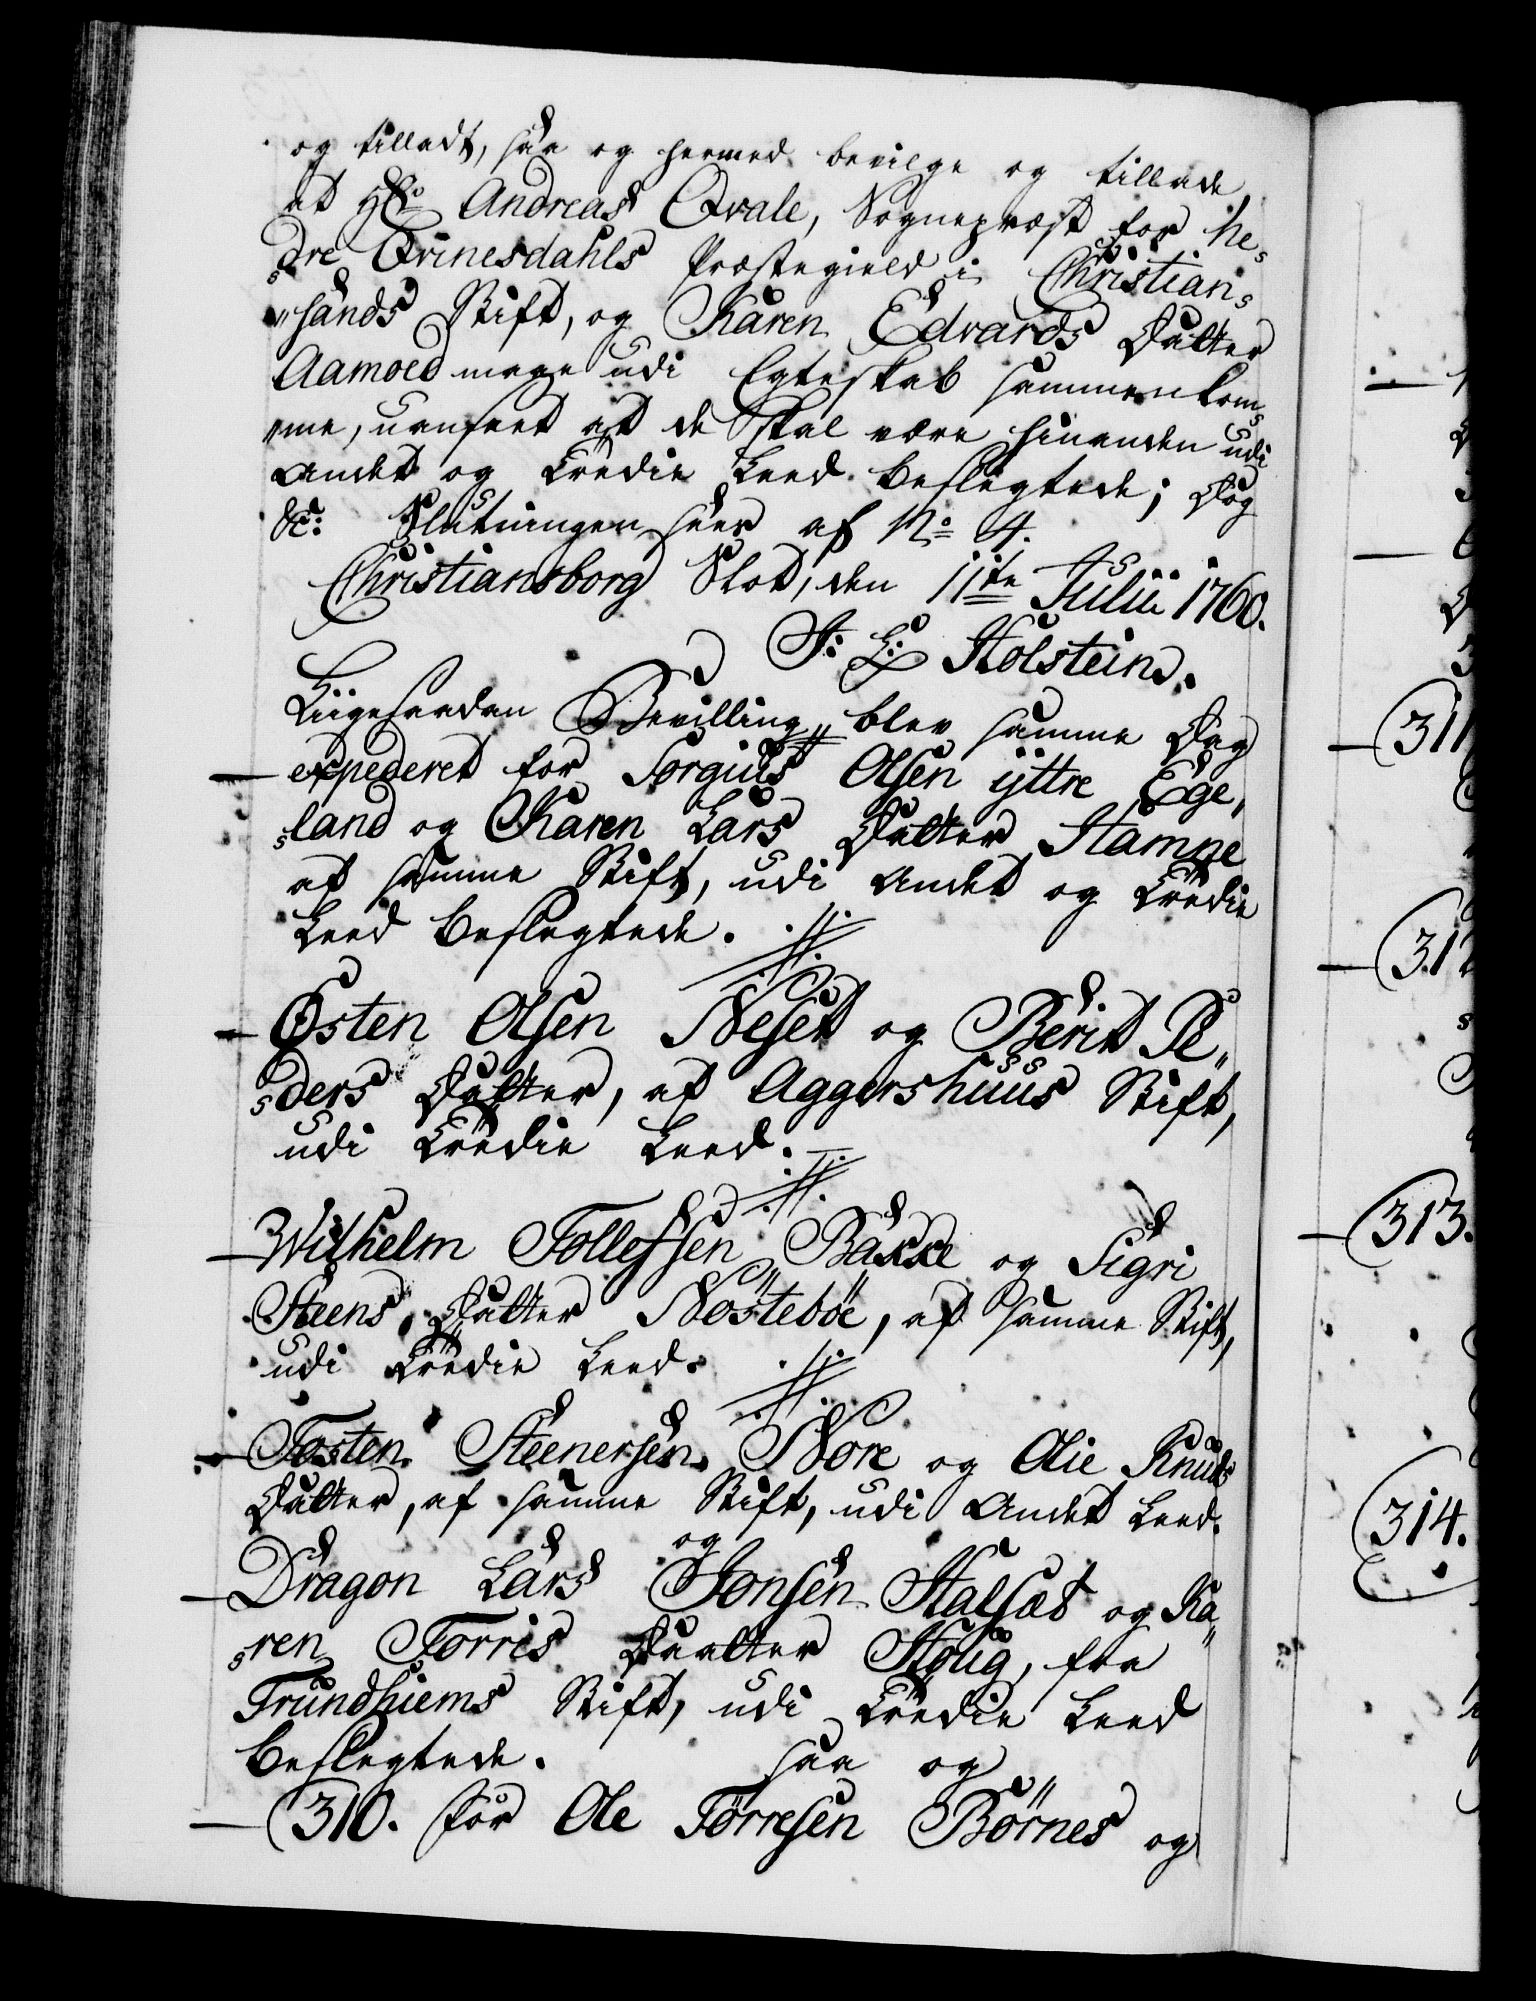 og tilladt, saa og hermed bevilge og tillade,
at Hr: Andreas Qvale, Sognepræst for Ne-
dre Qvinesdahls Præstegield i Christian-
sands Stift, og Karen Edvards Datter
Aamoed maae udi Egteskab sammenkom-
me, uanseet at de skal være hinanden udi
andet og tredie Leed beslegtede; Dog
&c: Slutningen sees af No 4.
Christiansborg Slot, den 11te Julii 1760.
J: L: Holstein.
Liigesaadan Bevilling blev samme Dag
expederet for Torgius Olsen ijttre Ege-
land og Karen Lars Datter Stampe
af samme Stift, udi andet og tredie
Leed beslegtede.
Østen Olsen Neset og Berit Pe-
ders Datter, af Aggershuus Stift,
udi tredie Leed.
Wilhelm Tollefssen Bakke og Sigri
Steens Datter Nøstebøe, af samme Stift,
udi tredie Leed.
Tosten Steenersen Nore og Olie Knuds
Datter, af samme Stift, udi andet Leed.
og
Dragon Lars Jonsen Stalsæt og Ka-
ren Torris Daatter Houg, fra
Trundhiems Stift, udi tredie Leed
beslegtede. saa og
310. for Ole Tørresen Børnes og
311
312
313.
314.